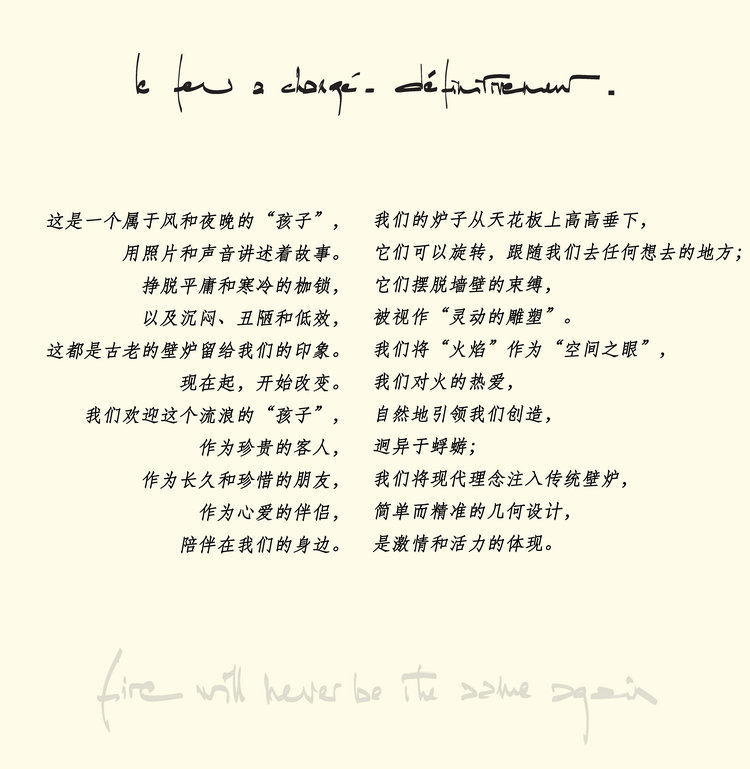 le feu a changé. définitivement.
这是一个属于风和夜晚的“孩子”，
用照片和声音讲述着故事。
挣脱平庸和寒冷的枷锁，
以及沉闷、丑陋和低效，
这都是古老的壁炉留给我们的印象。
现在起，开始改变。
我们欢迎这个流浪的“孩子”，
作为珍贵的客人，
作为长久和珍惜的朋友，
作为心爱的伴侣，
陪伴在我们的身边。
我们的炉子从天花板上高高垂下，
它们可以旋转，跟随我们去任何想去的地方；
它们摆脱墙壁的束缚，
被视作“灵动的雕塑”。
我们将“火焰”作为“空间之眼”，
我们对火的热爱，
自然地引领我们创造，
迥异于蜉蝣；
我们将现代理念注入传统壁炉，
简单而精准的几何设计，
是激情和活力的体现。
fire will never be the same again